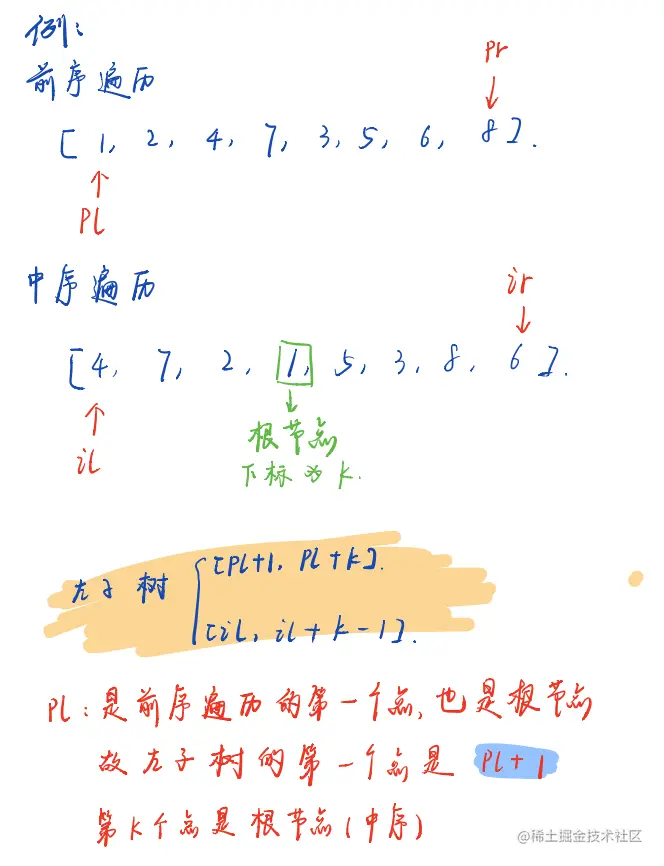 例：
前序遍历
pr
[ 1, 2, 4, 7, 3, 5, 6, 8 ].
Pl
中序遍历
ir
[ 4, 7, 2, 1, 5, 3, 8, 6 ].
il
根节点
下标为 k.
左子树 { [Pl+1, Pl+k].
[il, il+k-1].
Pl：是前序遍历的第一个点, 也是根节点
故左子树的第一个点是 Pl+1
第k个点是根节点(中序)
@稀土掘金技术社区